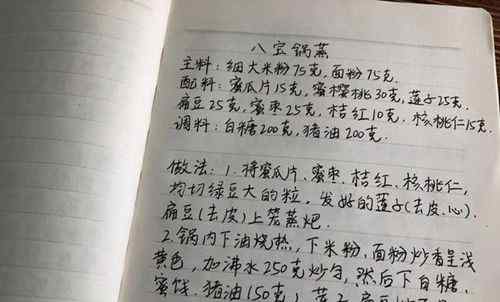 八宝锅蒸
主料：细大米粉75克，面粉75克.
配料：蜜瓜片15克，蜜樱桃30克，莲子25克.
扁豆25克，蜜枣25克，桔红10克.核桃仁15克.
调料：白糖200克，猪油200克.
做法：1.将蜜瓜片、蜜枣、桔红、核桃仁，
均切绿豆大的粒，发好的莲子(去皮、心).
扁豆(去皮)上笼蒸𤆵.
2.锅内下油烧热，下米粉，面粉炒香呈浅
黄色，加沸水250克炒匀，然后下白糖.
蜜饯.猪油150克